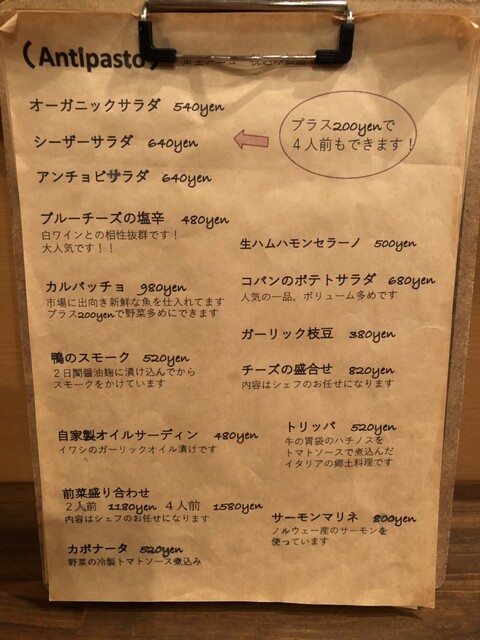 (AntIpasto)
オーガニックサラダ 540yen
シーザーサラダ 640yen
プラス200yenで
４人前もできます！
アンチョビサラダ 640yen
ブルーチーズの塩辛 480yen
白ワインとの相性抜群です！
大人気です！！
生ハムハモンセラーノ 500yen
カルパッチョ 980yen
市場に出向き新鮮な魚を仕入れてます
プラス200yenで野菜多めにできます
コパンのポテトサラダ 680yen
人気の一品、ボリューム多めです
ガーリック枝豆 380yen
鴨のスモーク 520yen
２日間醤油麹に漬け込んでから
スモークをかけています
チーズの盛合せ 820yen
内容はシェフのお任せになります
自家製オイルサーディン 480yen
イワシのガーリックオイル漬けです
トリッパ 520yen
牛の胃袋のハチノスを
トマトソースで煮込んだ
イタリアの郷土料理です
前菜盛り合わせ
２人前 1180yen ４人前 1580yen
内容はシェフのお任せになります
サーモンマリネ 800yen
ノルウェー産のサーモンを
使っています
カポナータ 520yen
野菜の冷製トマトソース煮込み